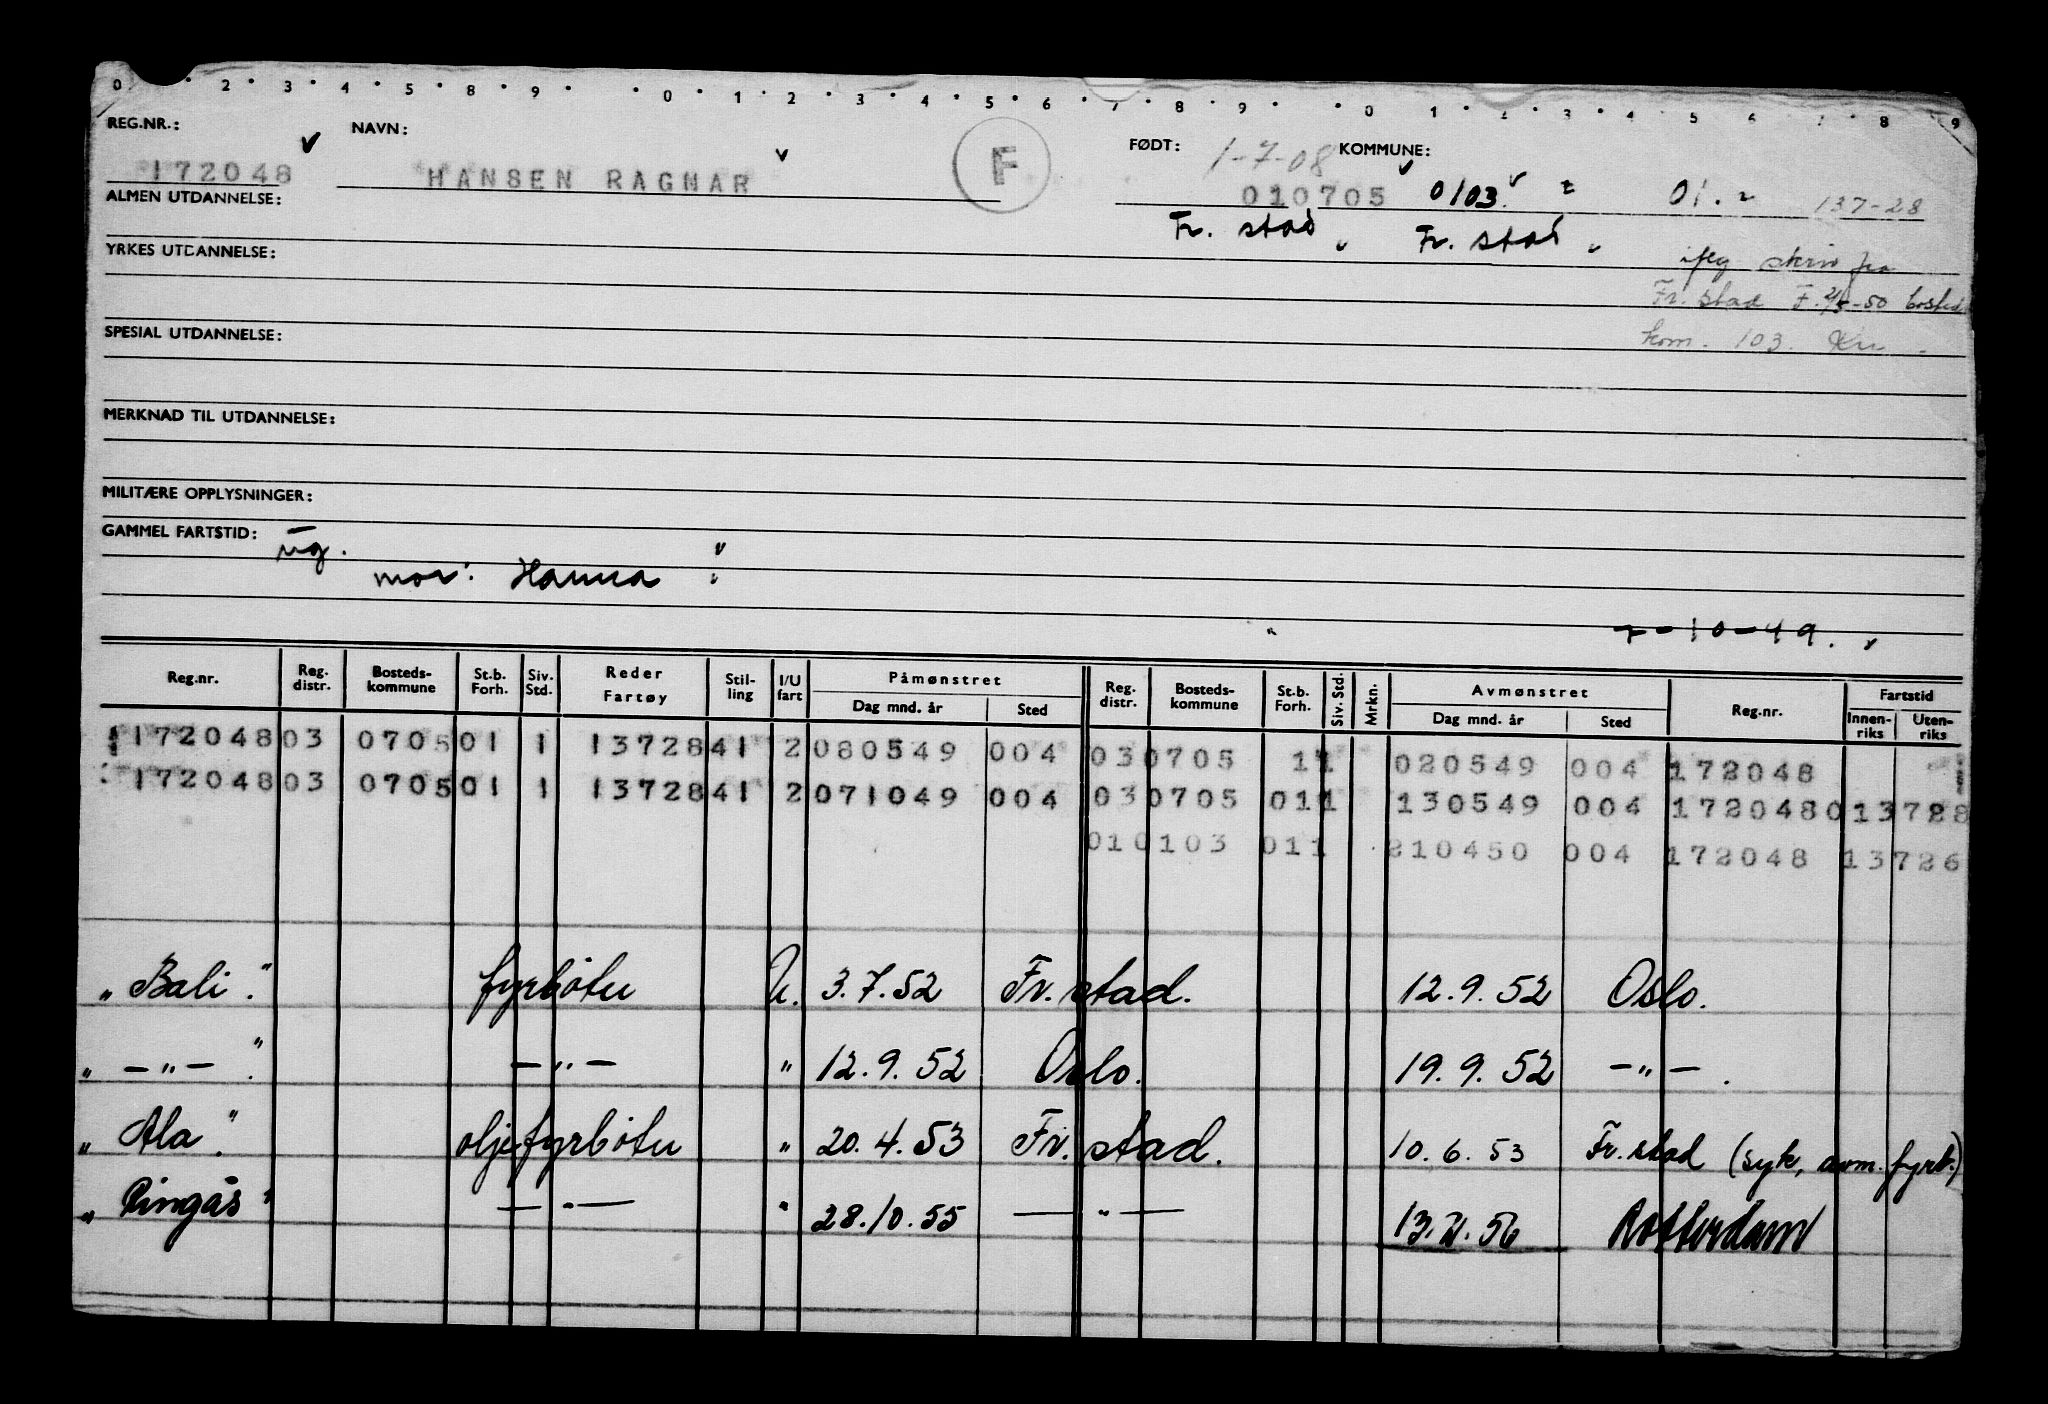 0 2 3 4 5 8 9 0 1 2 3 4 5 6 7 8 9 0 1 2 3 4 5 6 7 8 9
REG.NR.: NAVN: FØDT: 1-7-08 KOMMUNE:
172048 HANSEN RAGNAR F 010705 0103 01. 137-28
ALMEN UTDANNELSE: Fr. stad Fr. stad
YRKES UTDANNELSE: iflg skriv fra
Fr. stad F. -50 bosted
SPESIAL UTDANNELSE: kom. 103.
MERKNAD TIL UTDANNELSE:
MILITÆRE OPPLYSNINGER:
GAMMEL FARTSTID:
mor: Hanna
7-10-49.
Reg.nr. Reg. distr. Bosteds-kommune St.b. Forh. Siv. Std. Reder Fartøy Stil-ling I/U fart Påmønstret Dag mnd. år Sted Reg. distr. Bosteds-kommune St.b. Forh. Siv. Std. Mrkn. Avmønstret Dag mnd. år Sted Reg.nr. Fartstid Innen-riks Uten-riks
172048 03 0705 01 1 13728 41 2 080549 004 03 0705 1 1 020549 004 172048
172048 03 0705 01 1 13728 41 2 071049 004 03 0705 01 1 130549 004 172048 0 13728
01 0103 01 1 210450 004 172048 13726
"Bali". fyrbøter U. 3.7.52 Fr. stad. 12.9.52 Oslo.
" — " — ". — " — " 12.9.52 Oslo. 19.9.52 — " — .
"Ala". oljefyrbøter " 20.4.53 Fr. stad. 10.6.53 Fr. stad (syk, avm. fyrb.)
"Ringås" — " — " 28.10.55 — " — 13. 56 Rotterdam